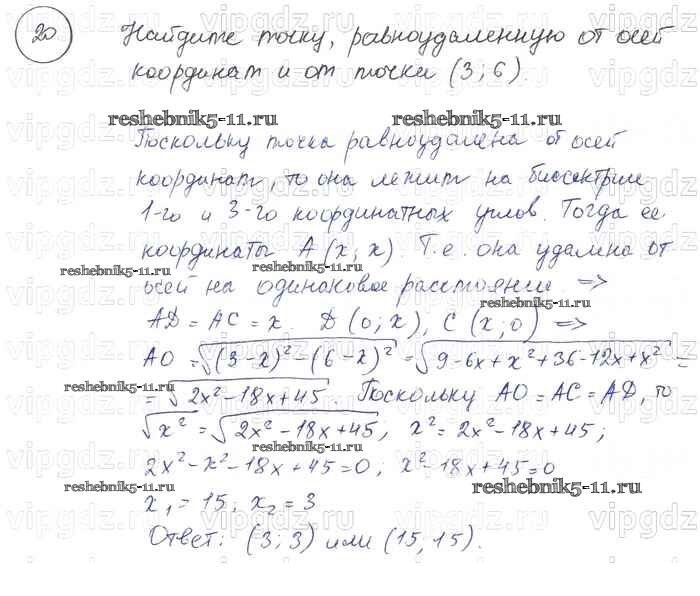 20 Найдите точку, равноудаленную от осей
координат и от точки (3; 6).
reshebnik5-11.ru reshebnik5-11.ru
Поскольку точка равноудалена от осей
координат, то она лежит на биссектрисе
1-го и 3-го координатных углов. Тогда ее
координаты A (x; x). Т.е. она удалена от
reshebnik5-11.ru reshebnik5-11.ru
осей на одинаковое расстояние. =>
reshebnik5-11.ru
AD = AC = x. D (0; x), C (x; 0) =>
AO = √(3-x)² - (6-x)² = √9-6x+x²+36-12x+x² =
reshebnik5-11.ru
= √2x²-18x+45. Поскольку AO = AC = AD, то
√x² = √2x²-18x+45, x² = 2x²-18x+45;
reshebnik5-11.ru
2x²-x²-18x+45=0; x²-18x+45=0
reshebnik5-11.ru reshebnik5-11.ru
x₁ = 15; x₂ = 3
Ответ: (3; 3) или (15, 15).
vipgdz.ru